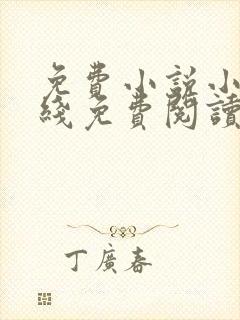 免費小説小
綫免費閱讀
丁廣春